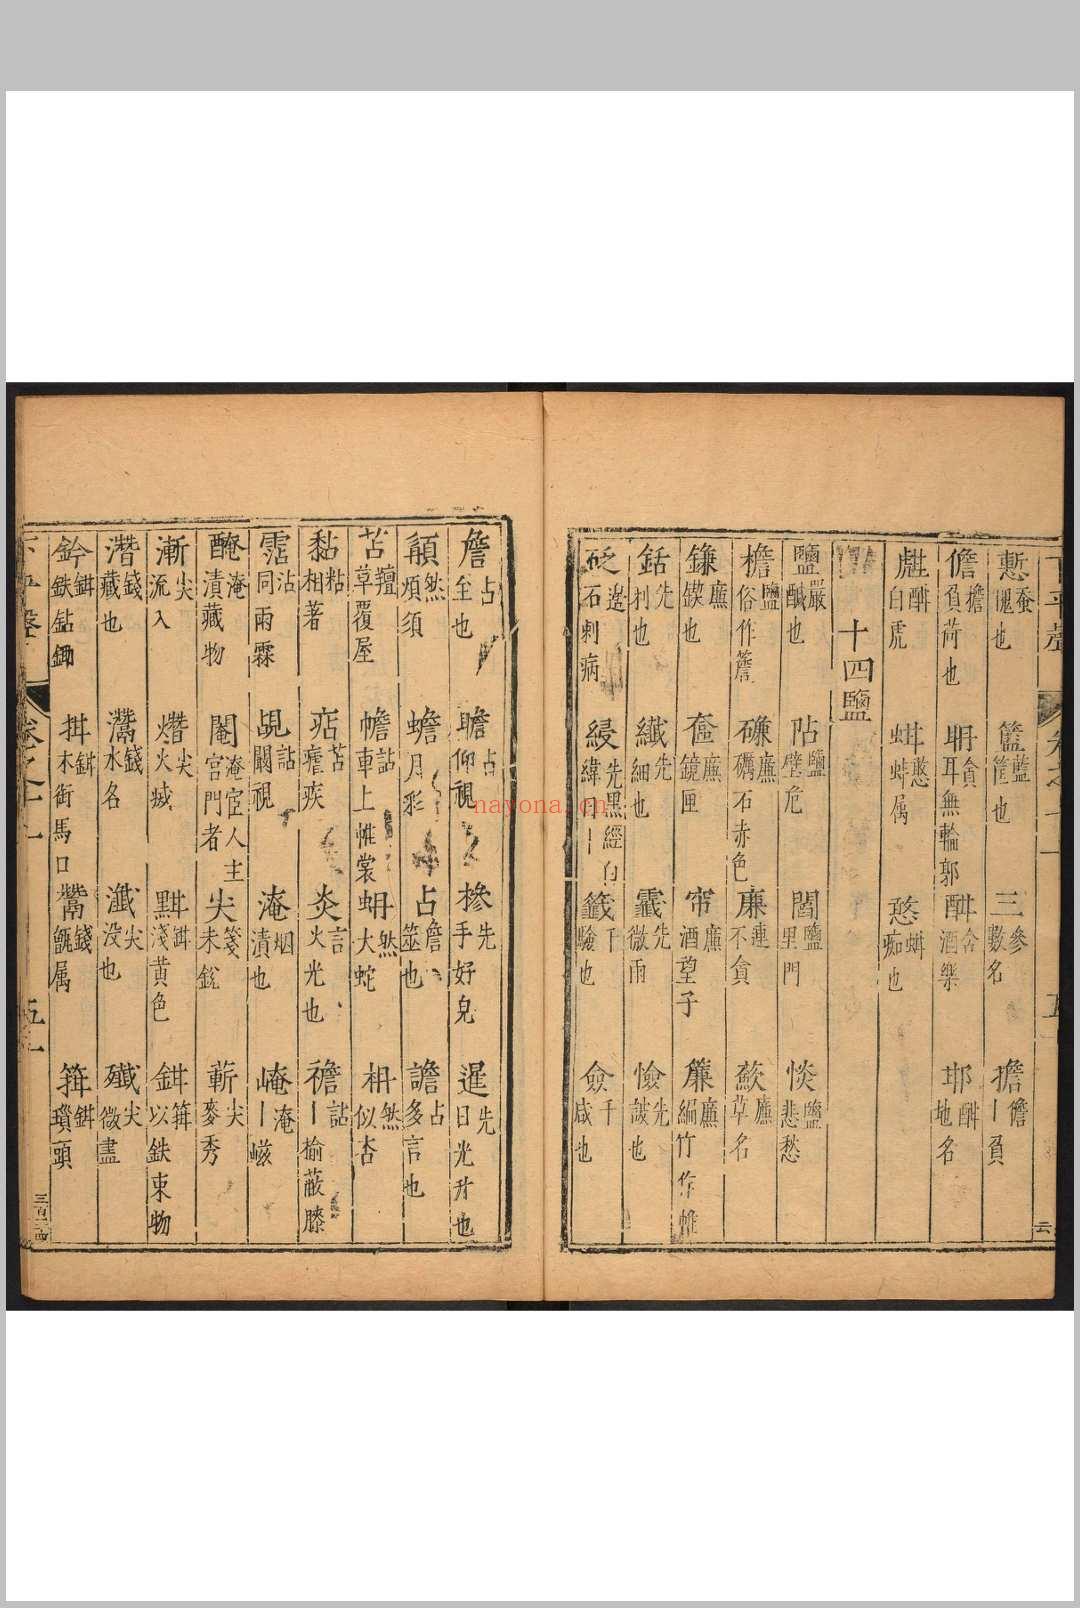 慙蚕愧也 籃藍筐也 三參數名 擔儋丨負
儋擔負荷也 耼貪耳無輪郭 酣含酒樂 邯酣地名
甝酣白虎 蚶憨蚌属 憨蚶痴也
十四鹽
鹽嚴鹹也 阽鹽壁危 閻鹽里門 惔鹽悲愁
檐鹽俗作簷 磏廉礪石赤色 廉連不貪 薟廉草名
鎌廉鍥也 奩廉鏡匣 帘廉酒望子 簾廉編竹作帷
銛先利也 纖先細也 霰先微雨 憸先詖也
砭邊石刺病 綅先黑經白緯曰丨 籤千驗也 僉千咸也
詹占至也 瞻占仰視 摻先手好皃 暹先日光升也
䫇然頰須 蟾月彩 占詹筮也 譫占多言也
苫羶草覆屋 幨詀車上帷裳 蚦然大蛇 枏然似杏
黏粘相著 痁苫瘧疾 炎言火光也 襜詀丨褕蔽膝
霑沾同雨霖 覘詀闚視 淹烟漬也 崦淹丨嵫
醃淹漬藏物 閹淹宦人主宮門者 尖箋末銳 蔪尖麥秀
漸尖流入 熸尖火烕 黚鉗淺黄色 鉗箝以鉄束物
潛錢藏也 灊錢水名 瀸尖没也 殲尖微盡
鈐鉗鉄鈷鋤 拑鉗木銜馬口 鬵錢甑属 箝鉗瓆頭
卷之十一
三百
nayona.cn